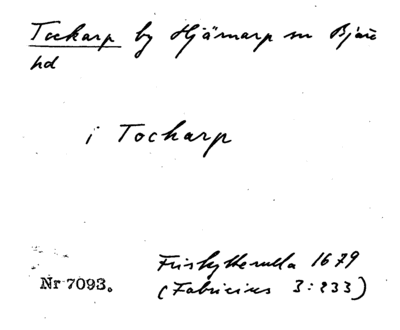 Tockarp by Hjärnarp sn Bjäre
hd
i Tockarp
Friskytterulla 1679
Nr 7093.
(Fabricius 3:233)